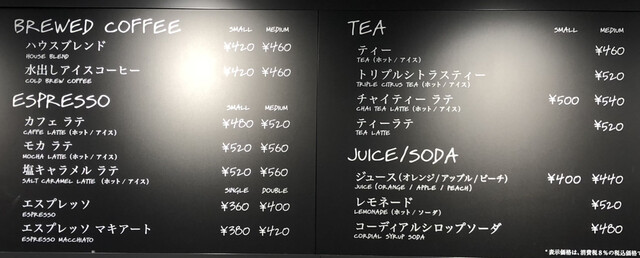 BREWED COFFEE SMALL MEDIUM
ハウスブレンド ¥420 ¥460
HOUSE BLEND
水出しアイスコーヒー ¥420 ¥460
COLD BREW COFFEE
ESPRESSO SMALL MEDIUM
カフェ ラテ ¥480 ¥520
CAFFE LATTE (ホット/アイス)
モカ ラテ ¥520 ¥560
MOCHA LATTE (ホット/アイス)
塩キャラメル ラテ ¥520 ¥560
SALT CARAMEL LATTE (ホット/アイス)
SINGLE DOUBLE
エスプレッソ ¥360 ¥400
ESPRESSO
エスプレッソ マキアート ¥380 ¥420
ESPRESSO MACCHIATO
TEA SMALL MEDIUM
ティー ¥460
TEA (ホット/アイス)
トリプルシトラスティー ¥520
TRIPLE CITRUS TEA (ホット/アイス)
チャイティー ラテ ¥500 ¥540
CHAI TEA LATTE (ホット/アイス)
ティーラテ ¥520
TEA LATTE
JUICE/SODA
ジュース (オレンジ/アップル/ピーチ) ¥400 ¥440
JUICE (ORANGE / APPLE / PEACH)
レモネード ¥520
LEMONADE (ホット/ソーダ)
コーディアルシロップソーダ ¥480
CORDIAL SYRUP SODA
*表示価格は、消費税8%の税込価格